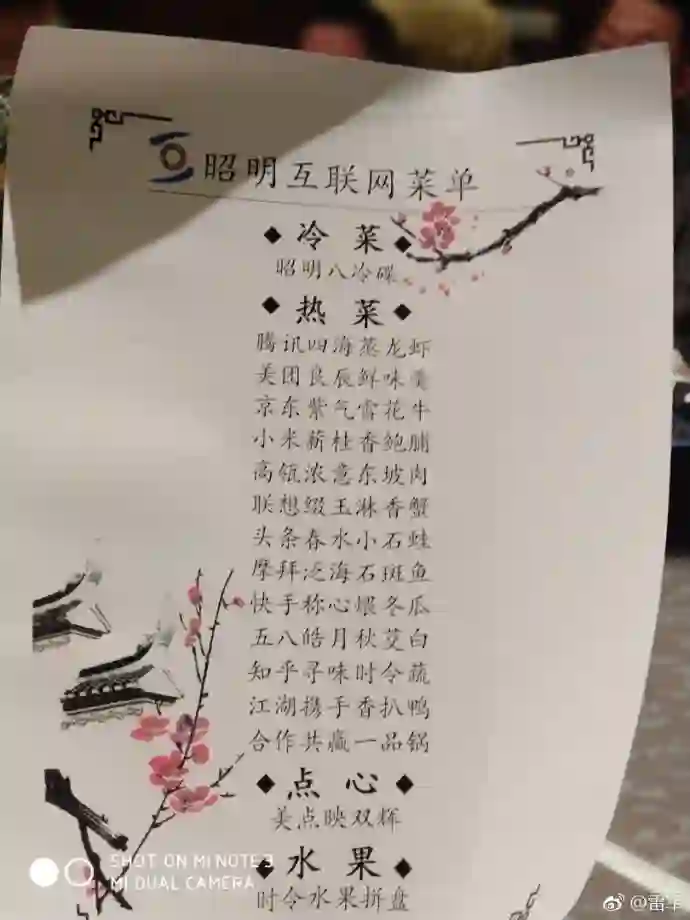 昭明互联网菜单
◆ 冷 菜 ◆
昭明八冷碟
◆ 热 菜 ◆
腾讯四海蒸龙虾
美团良辰鲜味羹
京东紫气雪花牛
小米薪桂香鲍脯
高瓴浓意东坡肉
联想缀玉淋香蟹
头条春水小石蛙
摩拜泛海石斑鱼
快手称心煨冬瓜
五八皓月秋茭白
知乎寻味时令蔬
江湖携手香扒鸭
合作共赢一品锅
◆ 点 心 ◆
美点映双辉
◆ 水 果 ◆
时令水果拼盘
SHOT ON MI NOTE 3
MI DUAL CAMERA
@雷军